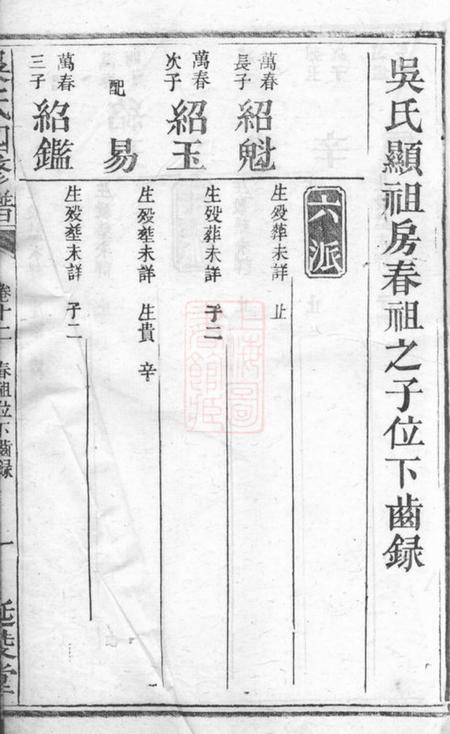 吳氏顯祖房春祖之子位下齒録
六派
萬春
長子
紹魁
生殁葬未詳 止
萬春
次子
紹玉
生殁葬未詳 子二
配
易
生殁塟未詳 生貴 辛
萬春
三子
紹鑑
生殁塟未詳 子二
吳氏四修譜
卷十二 春祖位下齒録 一 延陵堂
上海圖書館藏